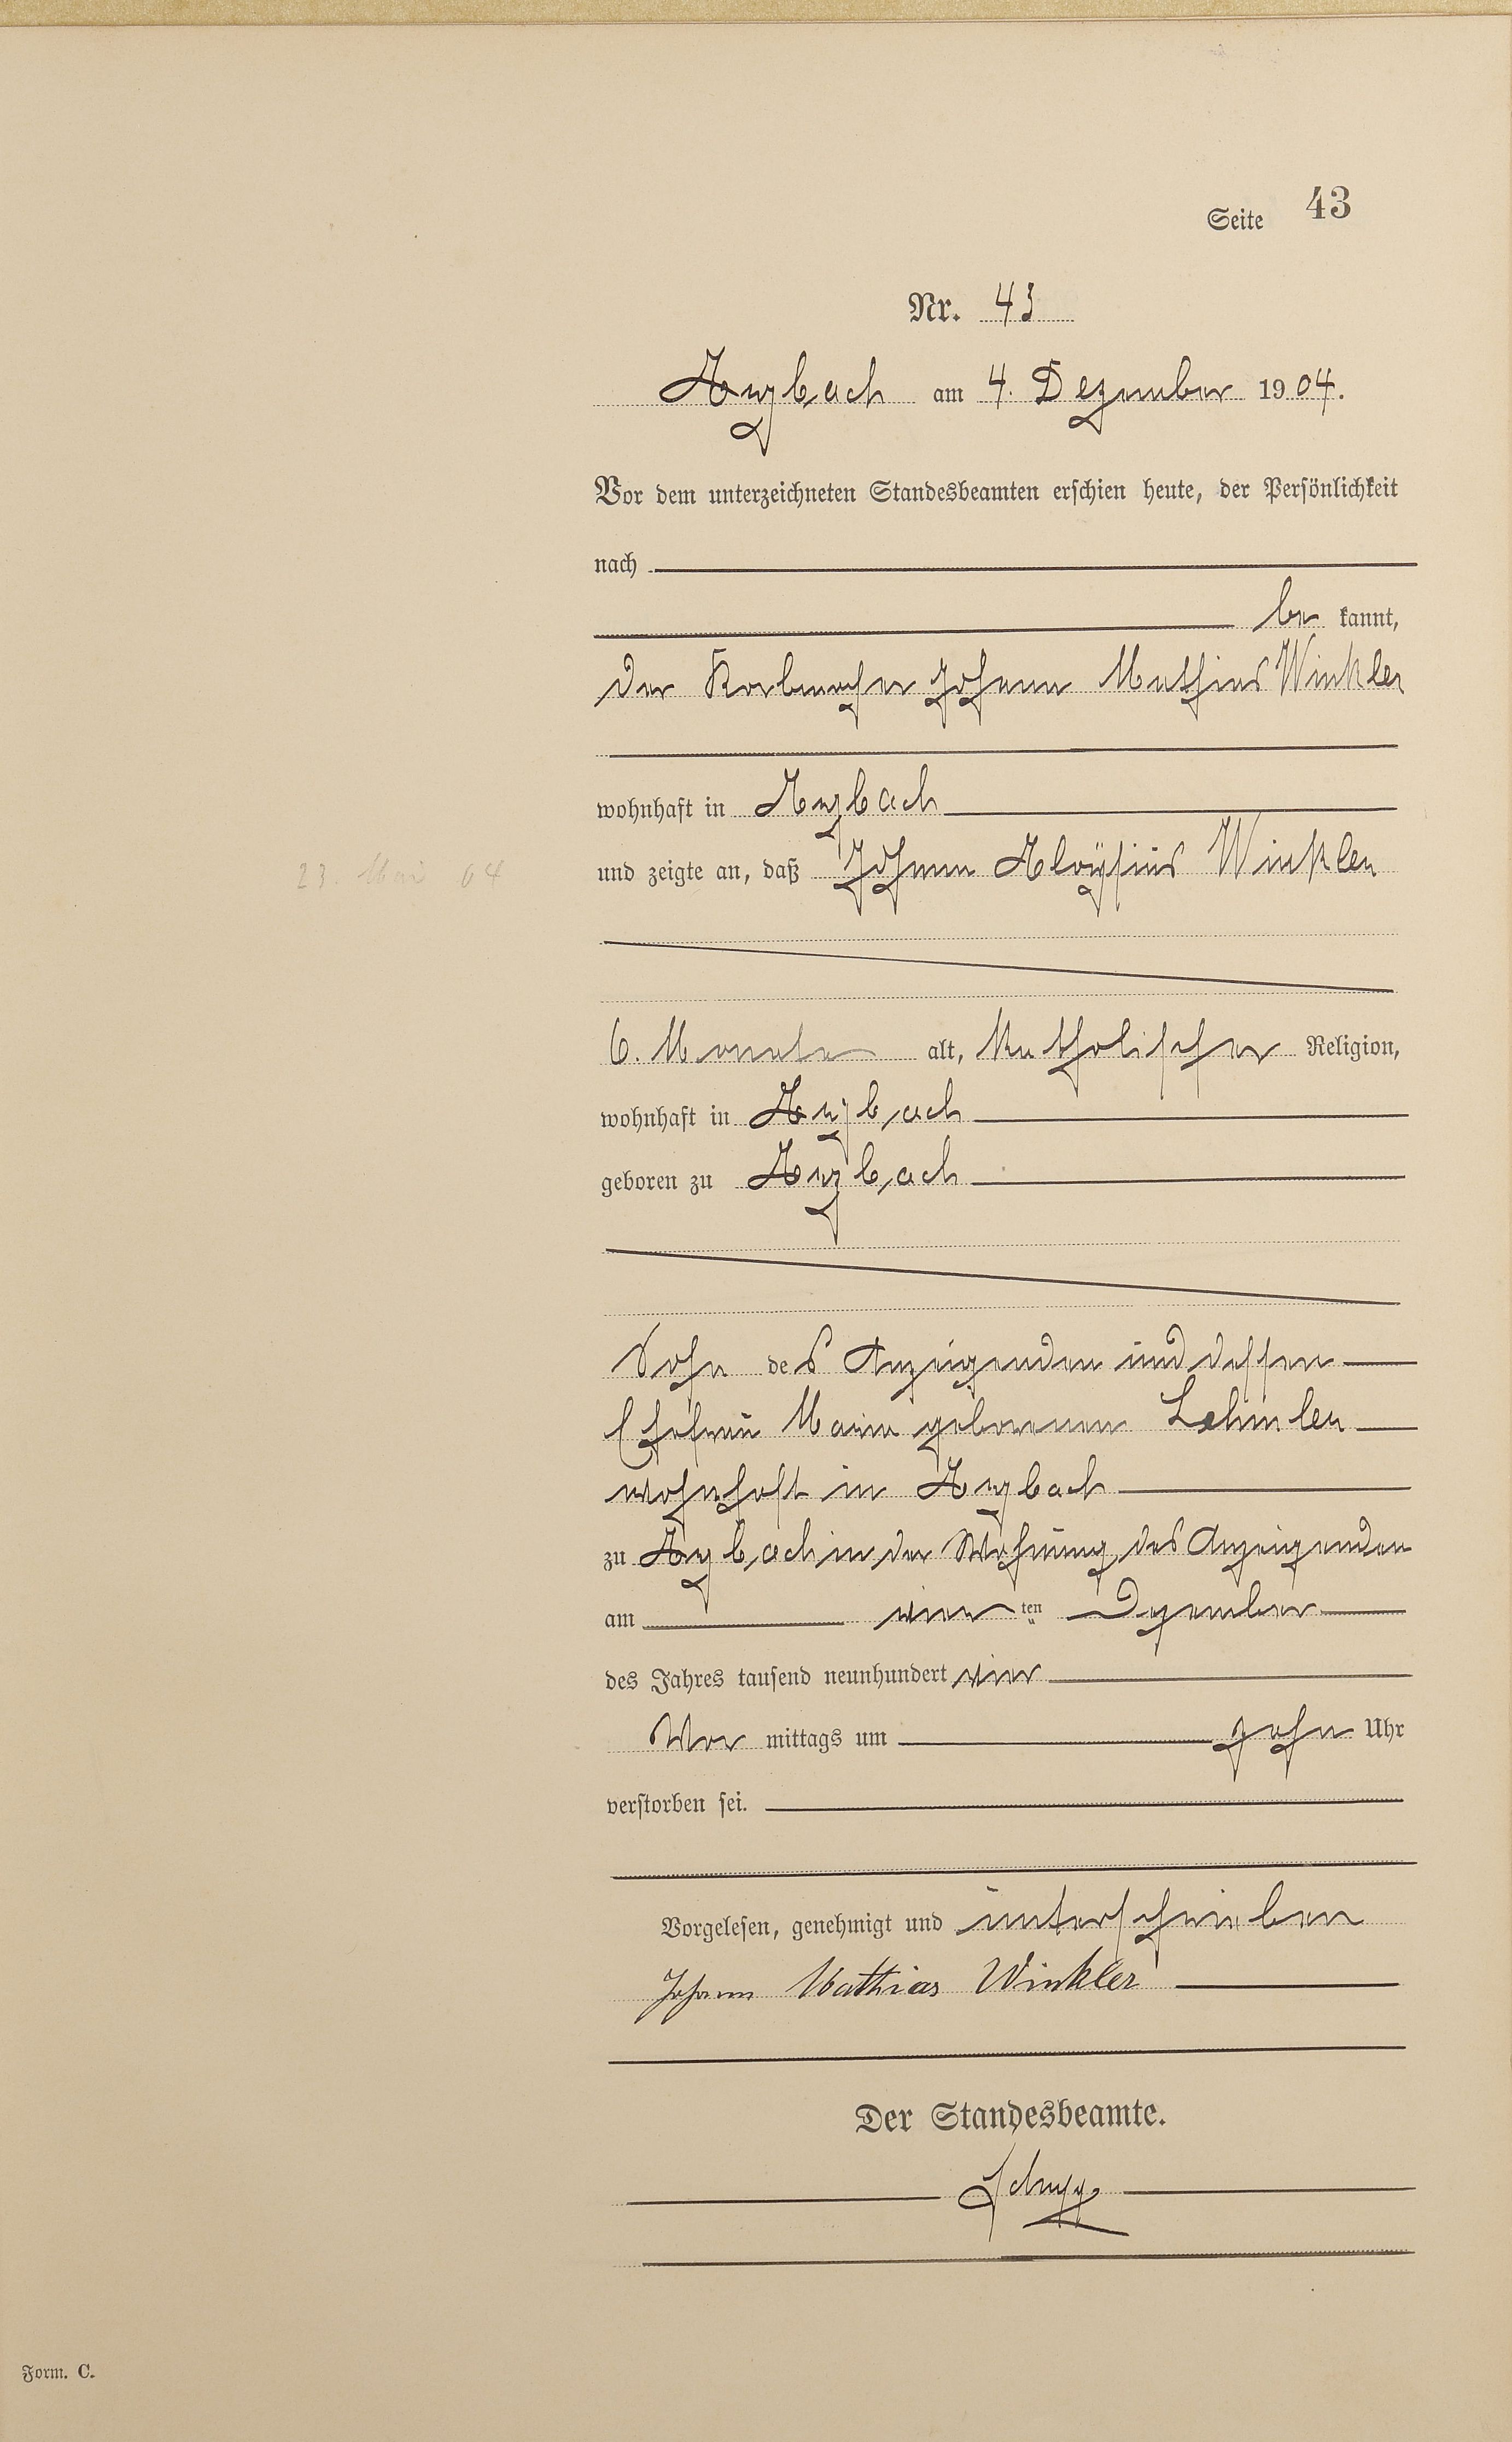 Seite 43
Nr. 43
Arzbach am 4. Dezember 1904.
Vor dem unterzeichneten Standesbeamten erschien heute, der Persönlichkeit
nach
be kannt,
der Korbmacher Johann Mathias Winkler
wohnhaft in Arzbach
23. Mai 04
und zeigte an, daß Johann Aloÿsius Winkler
6. Monate alt, Katholischer Religion,
wohnhaft in Arzbach
geboren zu Arzbach
Sohn des Anzeigenden und dessen
Ehefrau Maria geborenen Lehmler
wohnhaft in Arzbach
zu Arzbach in der Wohnung des Anzeigenden
am vier ten Dezember
des Jahres tausend neunhundert vier
Vor mittags um zehn Uhr
verstorben sei.
Vorgelesen, genehmigt und unterschrieben
Johann Mathias Winkler
Der Standesbeamte.
Form. C.